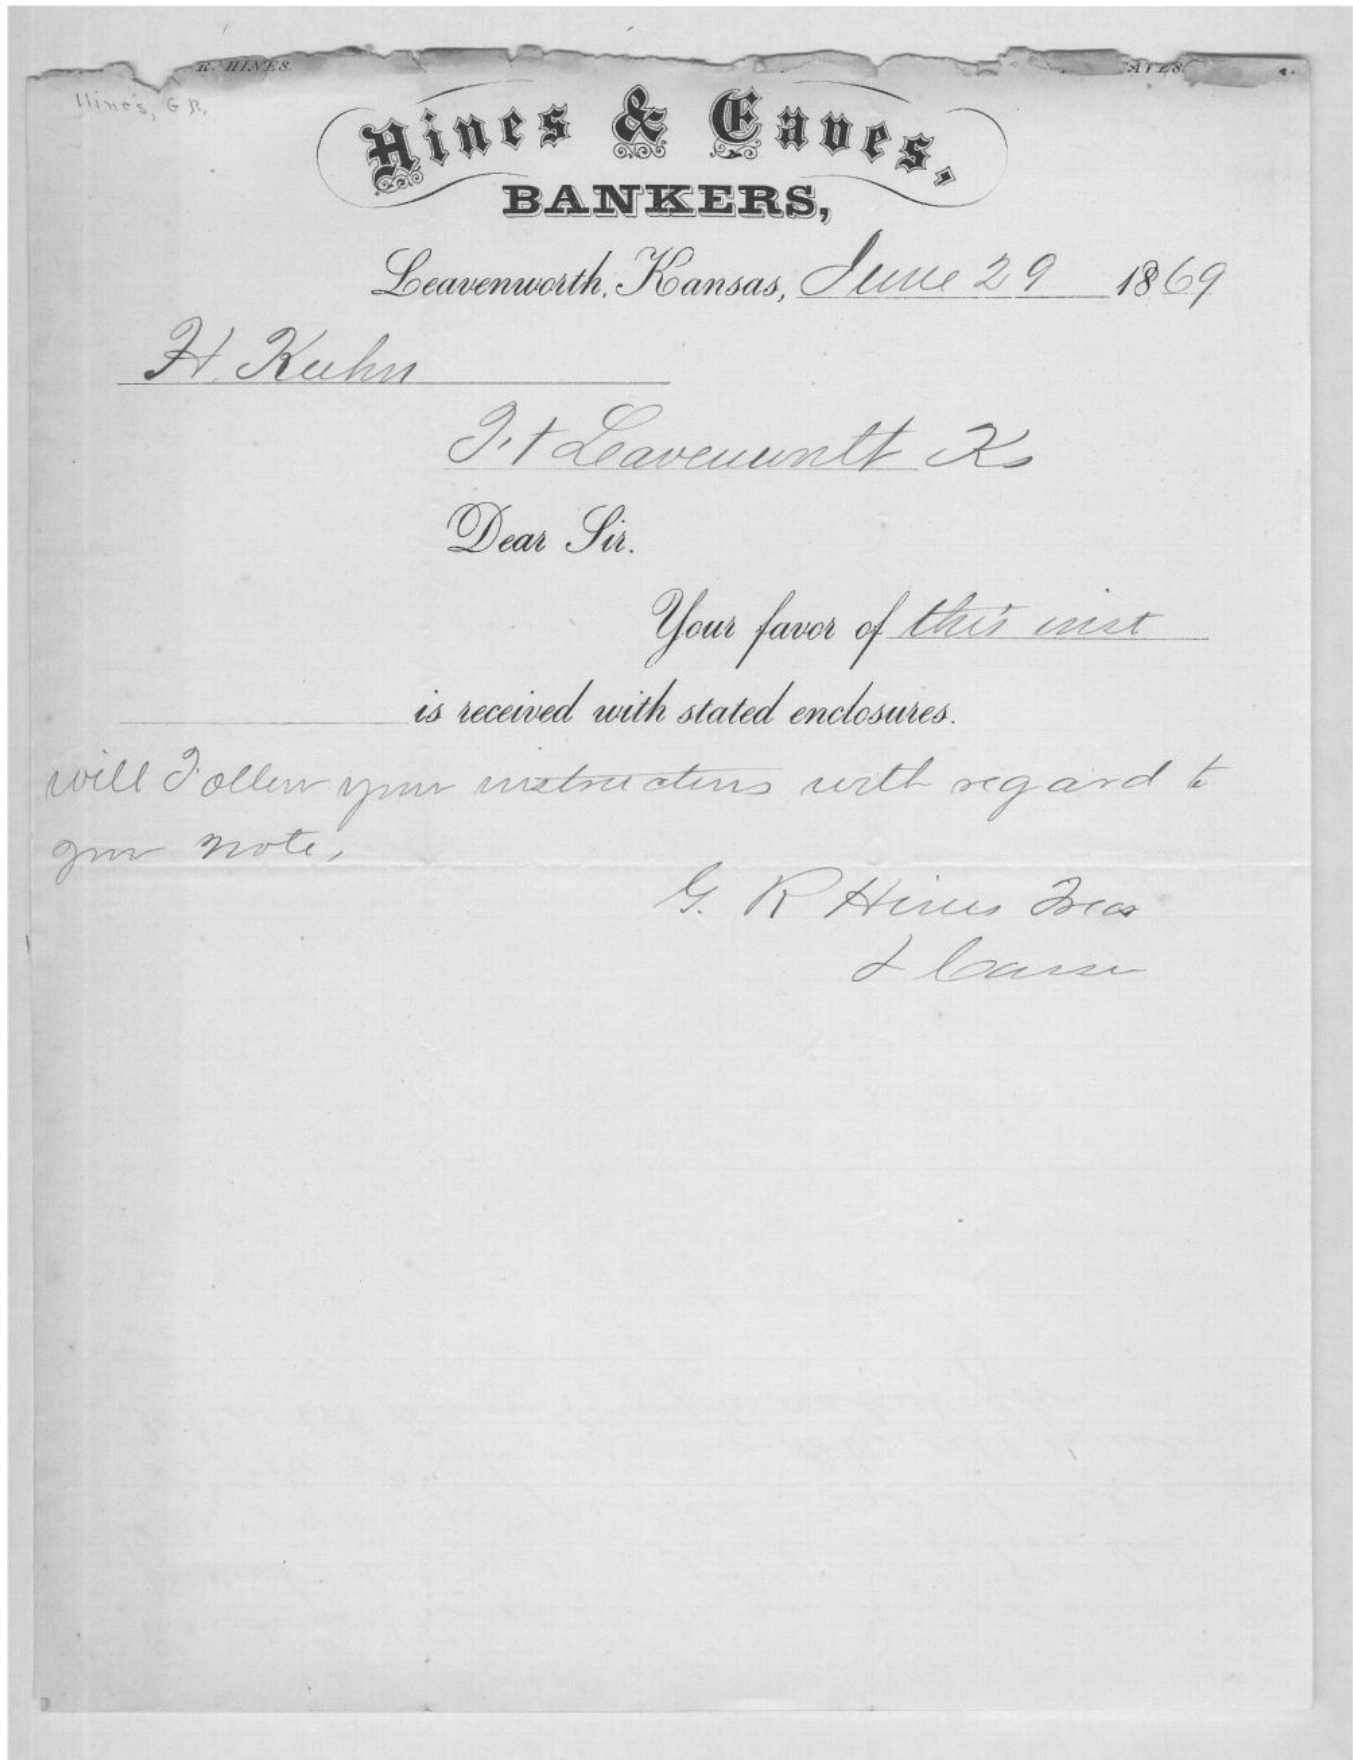 R. HINES.
AVES.
Hines, G R.
Hines & Eaves,
BANKERS,
Leavenworth, Kansas, June 29 1869
H. Kuhn
Ft Leavenworth Ks
Dear Sir.
Your favor of this inst
is received with stated enclosures.
will Follow your instructions with regard to
your note,
G. R Hines Treas